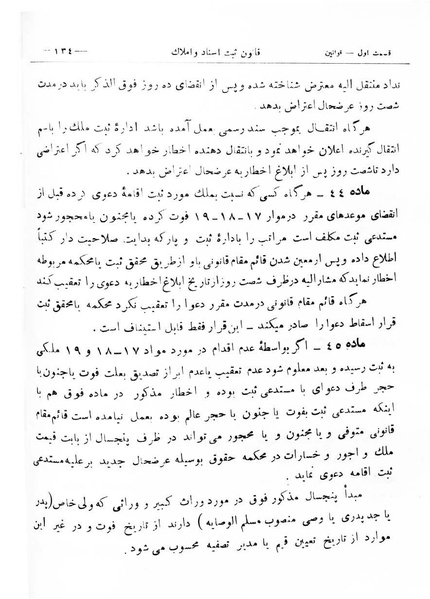 قسمت اول — قوانین قانون ثبت اسناد و املاک —۱۳۴—
نداد منتقل الیه معترض شناخته شده و پس از انقضای ده روز فوق الذکر باید درمدت
شصت روز عرضحال اعتراض بدهد.
هرگاه انتقال بموجب سند رسمی بعمل آمده باشد ادارۀ ثبت ملک را باسم
انتقال گیرنده اعلان خواهد نمود و بانتقال دهنده اخطار خواهد کرد که اگر اعتراضی
دارد تاشصت روز پس از ابلاغ اخطاریه عرضحال اعتراض بدهد.
ماده ٤٤ — هرگاه کسی که نسبت بملک مورد ثبت اقامۀ دعوی کرده قبل از
انقضای موعدهای مقرر درمواد ۱۷–۱۸–۱۹ فوت کرده یا مجنون یا محجور شود
مستدعی ثبت مکلف است مراتب را بادارۀ ثبت و پارکه بدایت صلاحیت دار کتباً
اطلاع داده و پس از معین شدن قائم مقام قانونی باو از طریق محقق ثبت یا محکمه مربوطه
اخطار نماید که مشارالیه در ظرف شصت روز از تاریخ ابلاغ اخطار به دعوی را تعقیب کند
هرگاه قائم مقام قانونی درمدت مقرر دعوا را تعقیب نکرد محکمه یا محقق ثبت
قرار اسقاط دعوا را صادر میکند — این قرار فقط قابل استیناف است.
ماده ٤٥ — اگر بواسطۀ عدم اقدام در مورد مواد ۱۷–۱۸ و ۱۹ ملکی
به ثبت رسیده و بعد معلوم شود عدم تعقیب یا عدم ابراز تصدیق بعلت فوت یا جنون یا
حجر طرف دعوای با مستدعی ثبت بوده و اخطار مذکور در ماده فوق هم با
اینکه مستدعی ثبت بفوت یا جنون یا حجر عالم بوده بعمل نیامده است قائم مقام
قانونی متوفی و یا مجنون و یا محجور می تواند در ظرف پنجسال از بابت قیمت
ملک و اجور و خسارات در محکمه حقوق بوسیله عرضحال جدید بر علیه مستدعی
ثبت اقامه دعوی نماید.
مبدأ پنجسال مذکور فوق در مورد وراث کبیر و وراثی که ولی خاص (پدر
یا جد پدری یا وصی منصوب مسلم الوصایه) دارند از تاریخ فوت و در غیر این
موارد از تاریخ تعیین قیم یا مدیر تصفیه محسوب می شود.